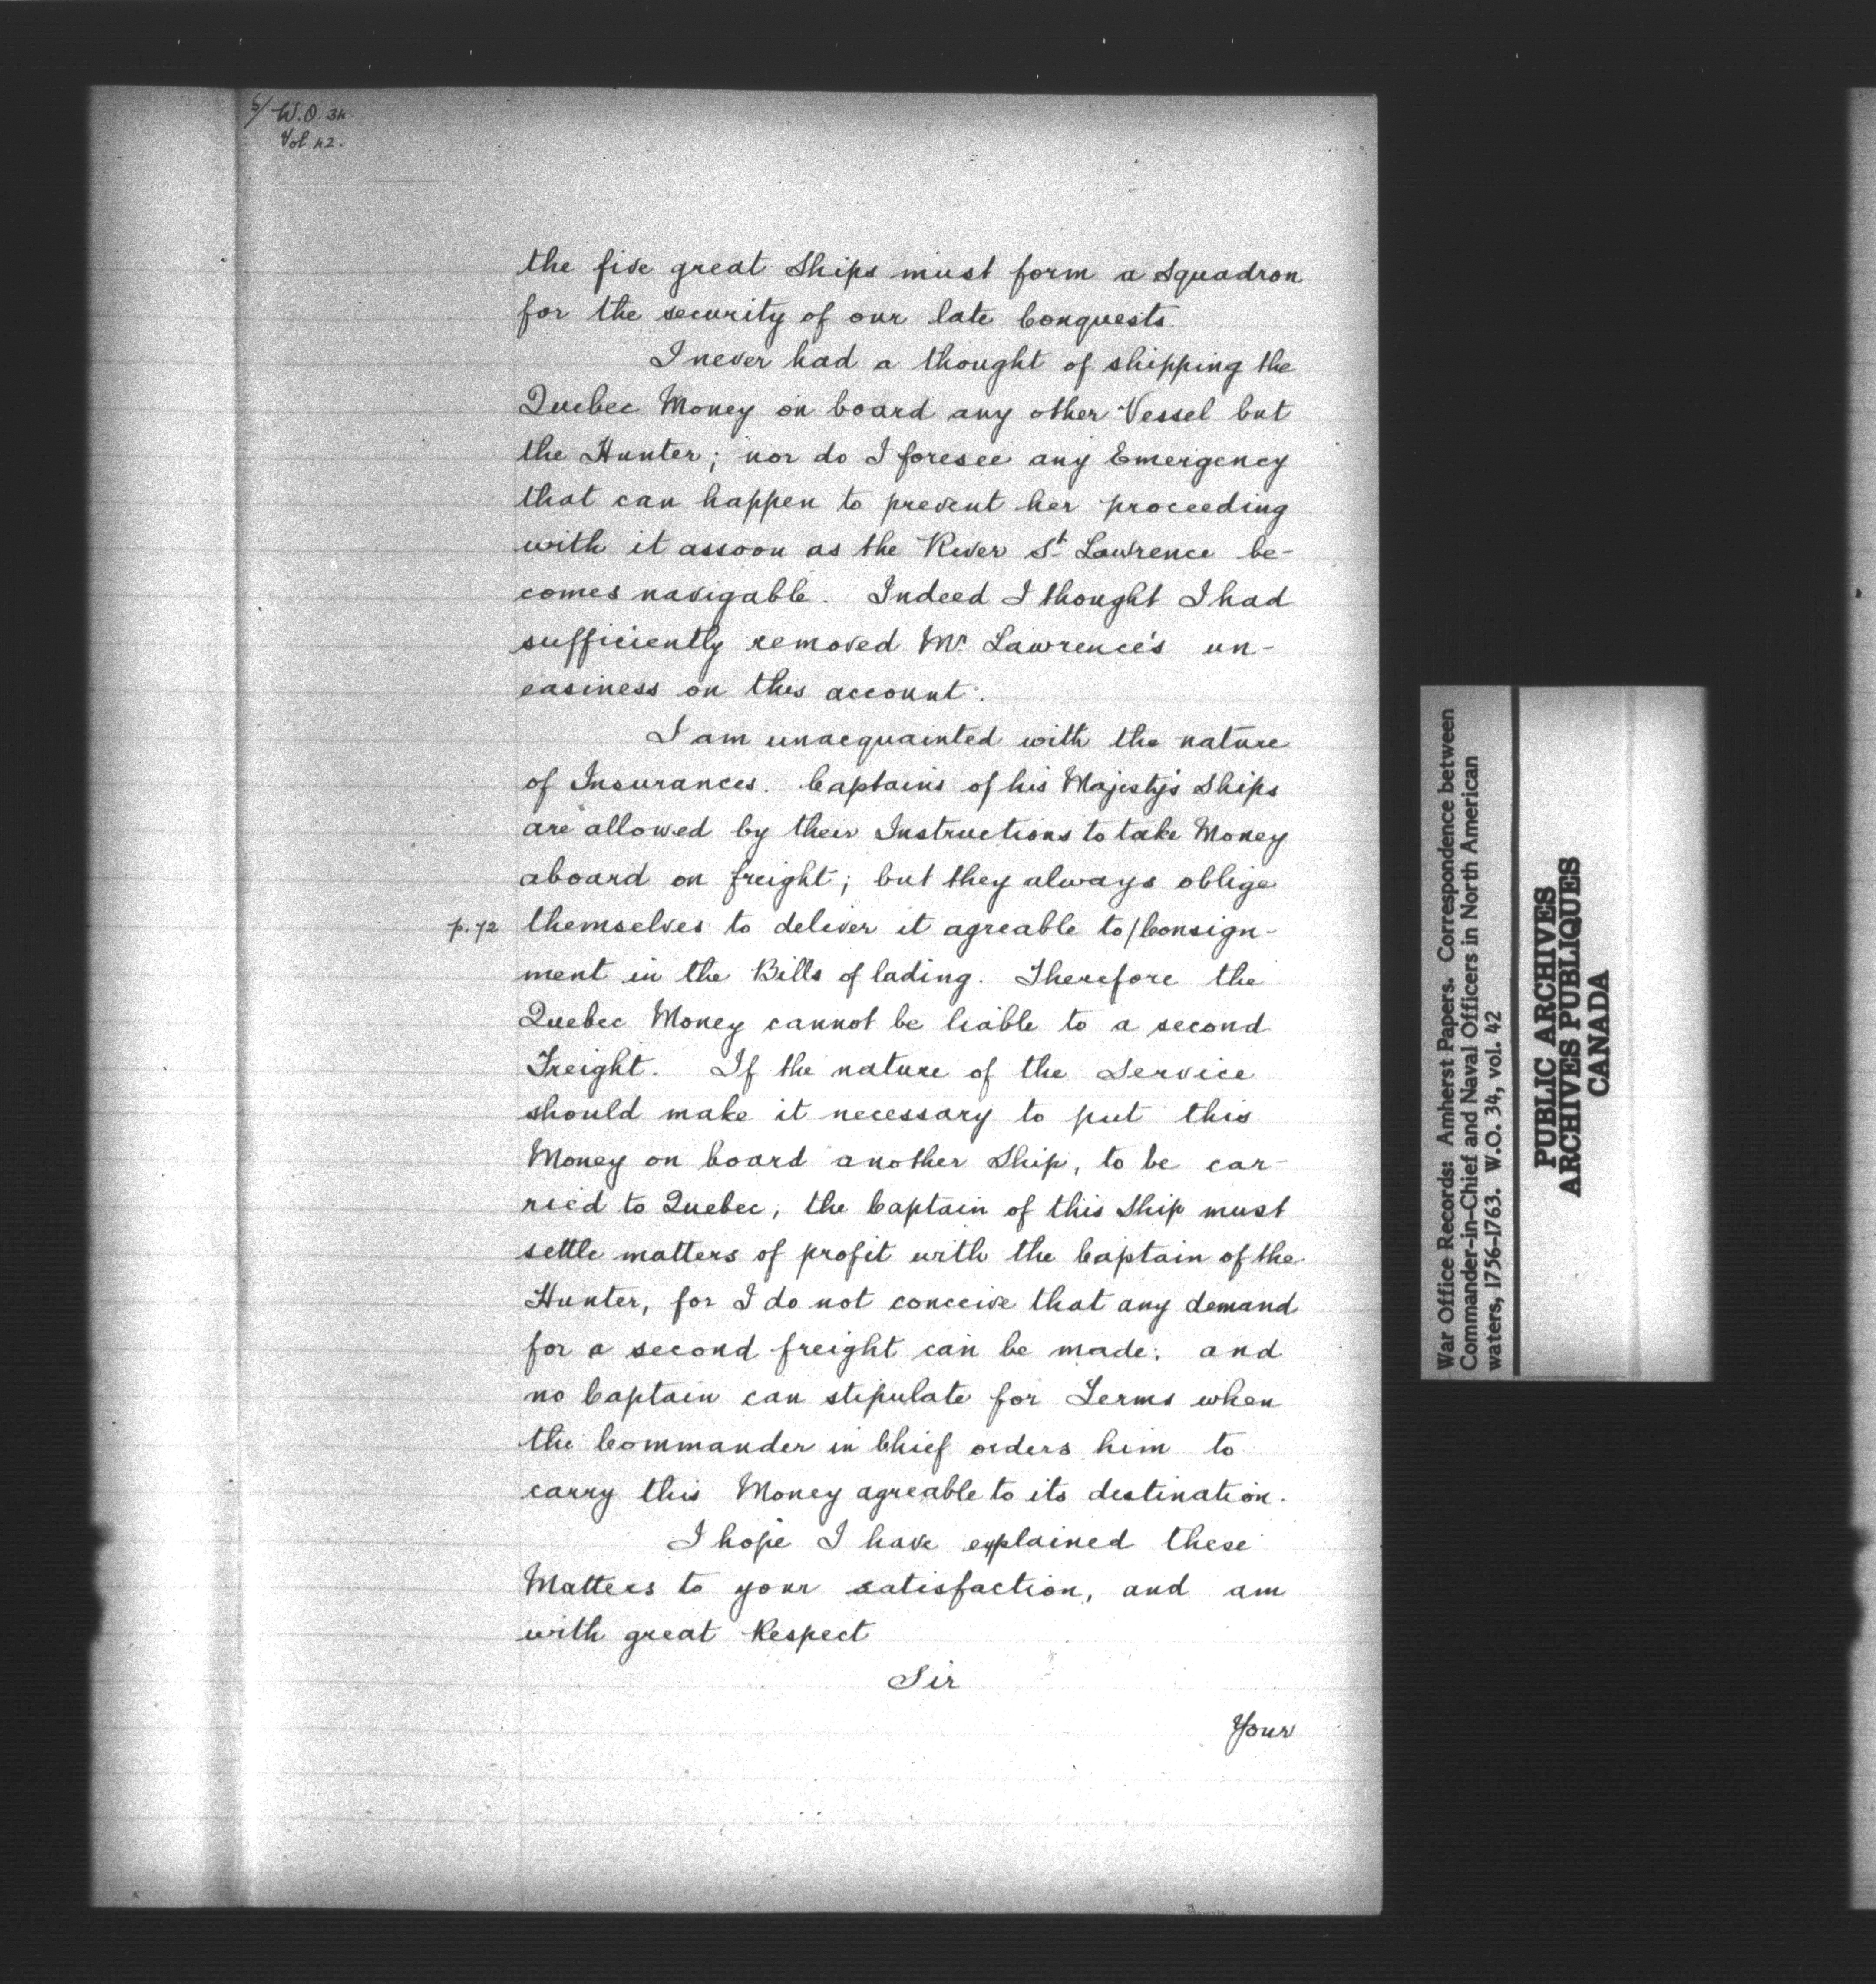 5/ W.O. 34.
Vol. 42.
the five great Ships must form a Squadron
for the security of our late Conquests.
I never had a thought of shipping the
Quebec Money on board any other Vessel but
the Hunter; nor do I foresee any Emergency
that can happen to prevent her proceeding
with it assoon as the River St. Lawrence be-
comes navigable. Indeed I thought I had
sufficiently removed Mr. Lawrence's un-
easiness on this account.
I am unacquainted with the nature
of Insurances. Captains of his Majesty's Ships
are allowed by their Instructions to take Money
aboard on freight; but they always oblige
p.72 themselves to deliver it agreable to/Consign-
ment in the Bills of lading. Therefore the
Quebec Money cannot be liable to a second
Freight. If the nature of the Service
should make it necessary to put this
Money on board another Ship, to be car-
ried to Quebec, the Captain of this Ship must
settle matters of profit with the Captain of the
Hunter, for I do not conceive that any demand
for a second freight can be made; and
no Captain can stipulate for Terms when
the Commander in Chief orders him to
carry this Money agreable to its destination.
I hope I have explained these
Matters to your satisfaction, and am
with great Respect
Sir
Your
War Office Records: Amherst Papers. Correspondence between
Commander-in-Chief and Naval Officers in North American
waters, 1756-1763. W.O. 34, vol. 42
PUBLIC ARCHIVES
ARCHIVES PUBLIQUES
CANADA